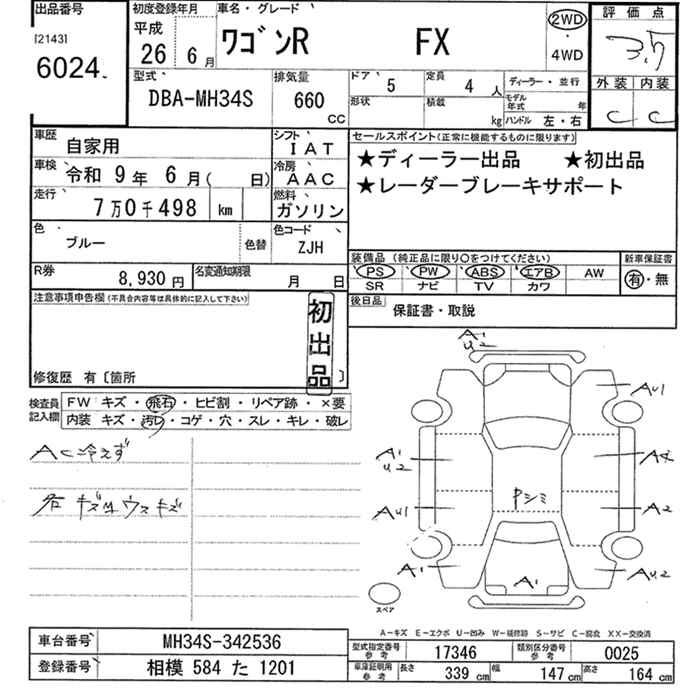 出品番号
[2143]
6024
初度登録年月
平成
26 6月
車名・グレード
ワゴンR FX
2WD
・
4WD
評価点
3.5
外装 内装
C C
型式
DBA-MH34S
排気量
660
CC
ドア 5
定員 4人
形状
積載 kg
ディーラー・並行
モデル年式 年
ハンドル 左・右
車歴 自家用
シフト IAT
車検 令和 9年 6月( 日)
冷房 AAC
走行 7万0千498 km
燃料 ガソリン
色 ブルー
色替
色コード ZJH
R券 8,930円
名変通知期限 月 日
セールスポイント(正常に機能するものに限ります)
★ディーラー出品 ★初出品
★レーダーブレーキサポート
装備品 (純正品に限り○をつけてください)
PS PW ABS エアB AW
SR ナビ TV カワ
新車保証書
有・無
後日品 保証書・取説
注意事項申告欄(不具合内容等は具体的に記入して下さい)
初出品
修復歴 有〔箇所 〕
検査員記入欄
FW キズ・飛石・ヒビ割・リペア跡・×要
内装 キズ・汚レ・コゲ・穴・スレ・キレ・破レ
AC冷えず
右 キズ ウスキズ
A1
U2
AU1
A1
U2
A2
Pシミ
AU1
A2
A1
A1
AU2
スペア
A－キズ E－エクボ U－凹み W－補修跡 S－サビ C－腐食 XX－交換済
車台番号 MH34S-342536
登録番号 相模 584 た 1201
型式指定番号 参考 17346
類別区分番号 参考 0025
車庫証明用 参考 長さ 339 cm 幅 147 cm 高さ 164 cm